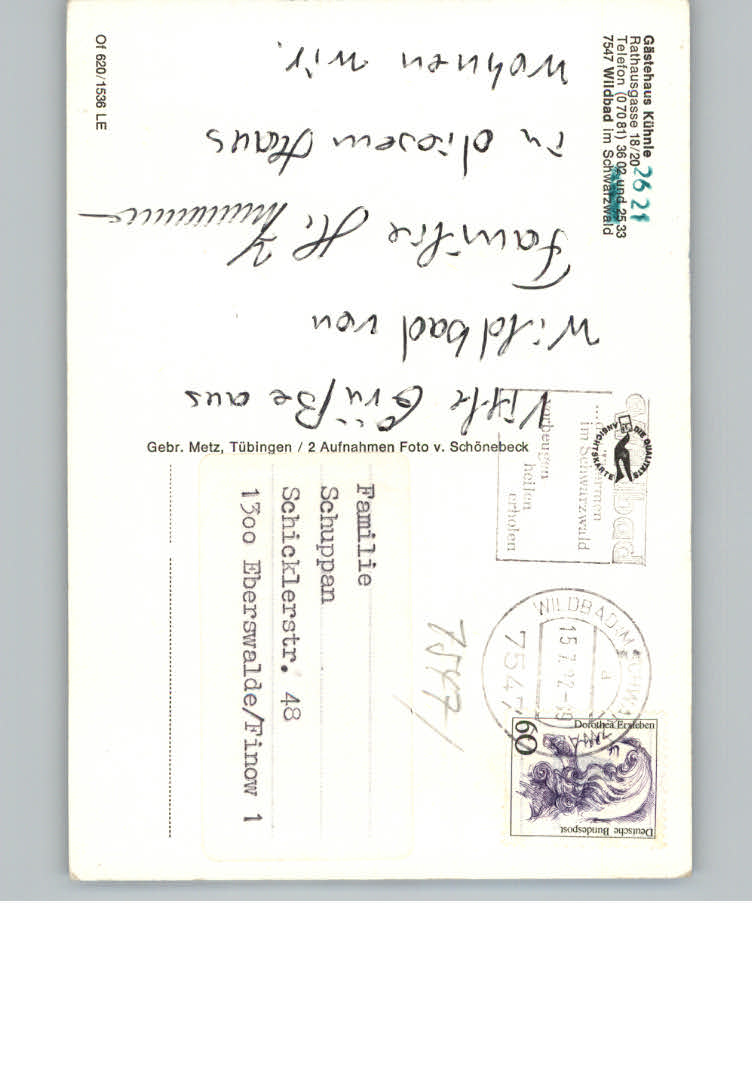 Gästehaus Kühnle
Rathausgasse 18/20
Telefon (0 70 81) 36 02 und 25 33
7547 Wildbad im Schwarzwald
26 21
Viele Grüße aus
Wildbad von
Familie H.
in diesem Haus
wohnen wir.
Of 620/1536 LE
Gebr. Metz, Tübingen / 2 Aufnahmen Foto v. Schönebeck
DIE QUALITÄTS
ANSICHTSKARTE
im Schwarzwald
vorbeugen
heilen
erholen
WILDBAD
15.7.92-19
a
7547
Deutsche Bundespost
Dorothea Erxleben
60
7547
Familie
Schuppan
Schicklerstr. 48
1300 Eberswalde/Finow 1